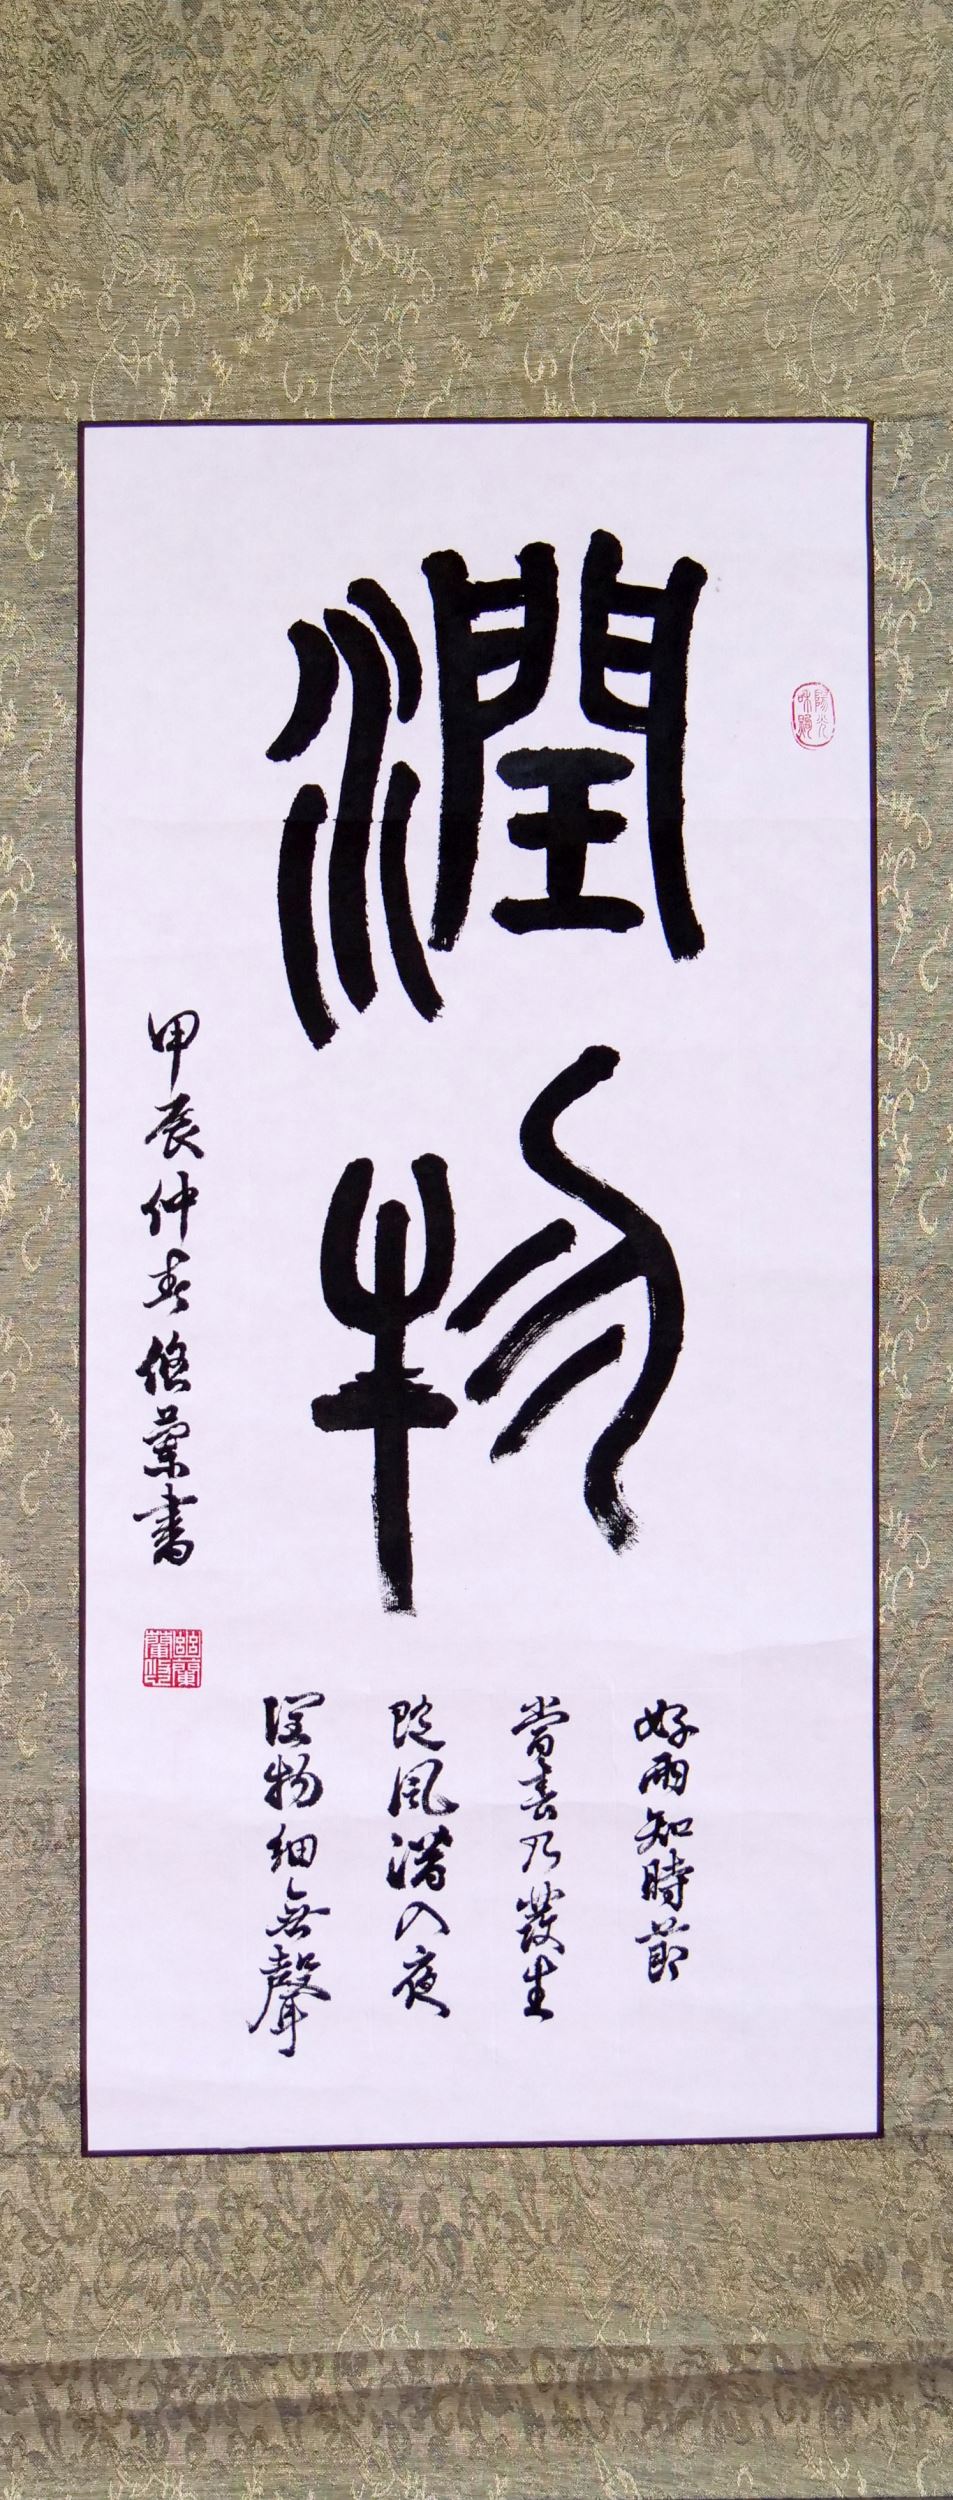 潤物
好雨知時節
當春乃發生
隨風潛入夜
潤物細無聲
甲辰仲春悠蘭書